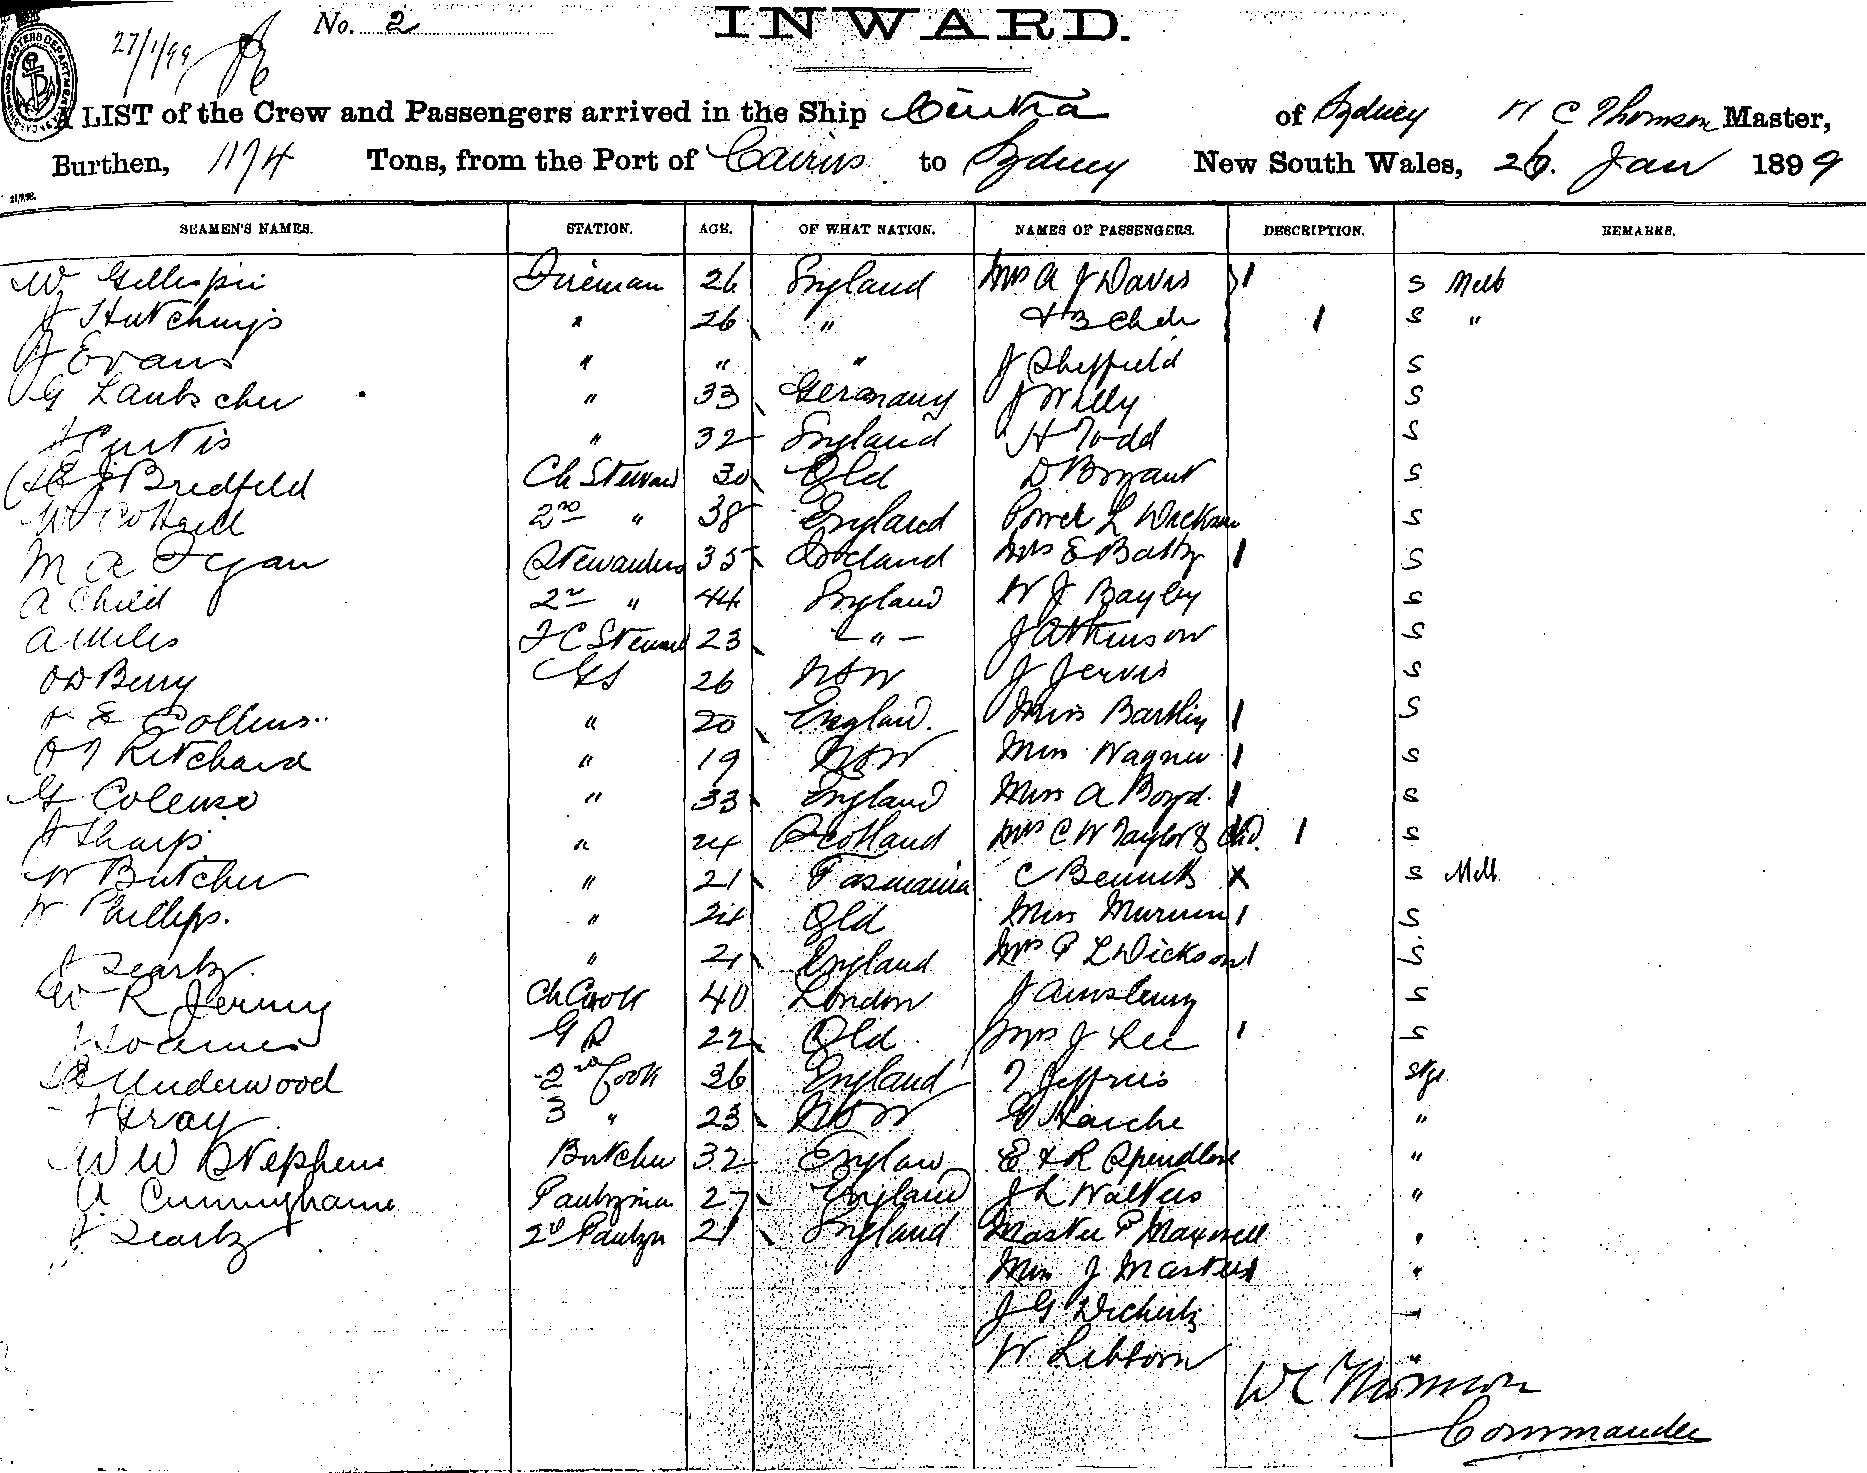 No. 2
INWARD.
27/1/99
A LIST of the Crew and Passengers arrived in the Ship Cintra of Sydney W C Thomson Master,
Burthen, 1174 Tons, from the Port of Cairns to Sydney New South Wales, 26. Jan 1899
SEAMEN'S NAMES. STATION. AGE. OF WHAT NATION. NAMES OF PASSENGERS. DESCRIPTION. REMARKS.
W Gillespie Fireman 26 England Mrs A J Davis 1 S Melb
J Hutchings " 26 " 1 S "
J Evans " " " J Sheffield S
G Laubscher " 33 Germany J Willy S
Curtis " 32 England H Todd S
Bredfeld Ch Steward 30 Qld D Bryant S
W Cottrell 2nd " 38 England L S
M A Fegan Stewardess 35 Mrs E Batty 1 S
A Child 2nd " 44 England W J Bayley S
A Miles F C Steward 23 - " - J Atkinson S
O D Berry GS 26 NSW J Jervis S
E Collins " 20 England. Miss 1 S
Ritchard " 19 NSW Miss Wagner 1 S
G Colenso " 33 England Miss A Boyd 1 S
J Sharp " 24 Scotland Mrs C W Taylor & Chd. 1 S
W Butcher " 21 Tasmania C Bennett X S Melb
W Phillips. " 24 Qld Miss 1 S
J " 21 England Mrs P L Dickson 1 S
W R Jenny Ch Cook 40 London J Ainsbury S
22 Qld Mrs J Lee 1 S
Underwood 2nd Cook 36 England T Jeffries Stge
Gray 3 " 23 NSW "
W W Stephens Butcher 32 England E & R Spendlove "
A Cunninghame Pantryman 27 England J L Walters "
J 2nd Pantrym 21 England Master P Maxwell "
Miss J Masters 1 "
J G "
W "
W C Thomson
Commander